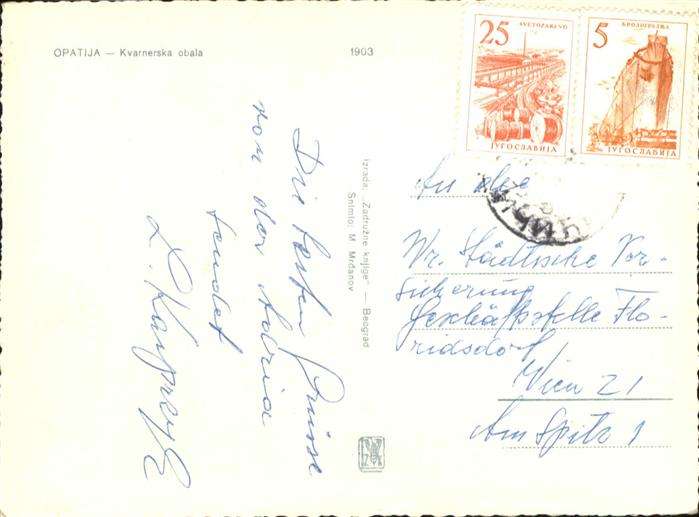 OPATIJA — Kvarnerska obala
1903
25
SVETOZAREVO
JUGOSLAVIJA
5
БРОДОГРАДЊА
ЈУГОСЛАВИЈА
Die besten Grüsse
von der Adria
sendet
L.
Izrada: „Zadružne knjige" — Beograd
Snimio: M. Mrđanov
An die
Wr. Städtische Ver-
sicherung
Geschäftsstelle Flo-
ridsdorf
Wien 21
Am Spitz 1